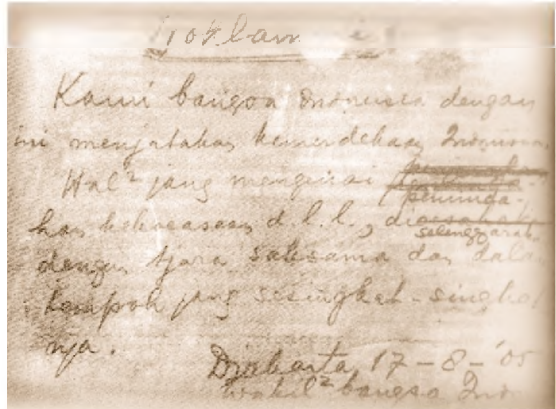 Kami bangsa Indonesia dengan
ini menjatakan kemerdekaan Indonesia.
Hal² jang mengenai
peminda-
han kekoeasaan d.l.l., dioesahakan
selenggarakan
dengan tjara saksama dan dalam
tempoh jang sesingkat-singkat
nja.
Djakarta 17-8-'05
Wakil² bangsa Indo